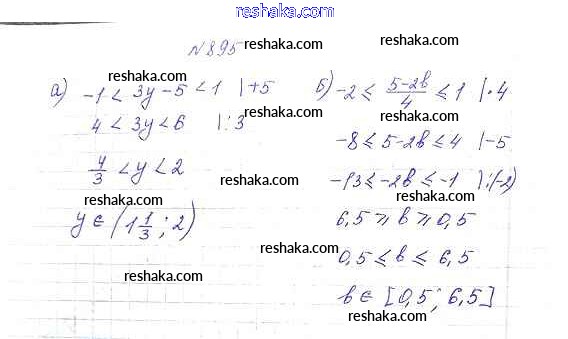 www.reshaka.com
№895 reshaka.com
reshaka.com
reshaka.com
а) -1 < 3y - 5 < 1 | +5
4 < 3y < 6 | : 3
reshaka.com
4/3 < y < 2
reshaka.com
y ∈ (1 1/3 ; 2)
reshaka.com
reshaka.com
б) -2 ≤ (5-2b)/4 ≤ 1 | · 4
reshaka.com
-8 ≤ 5-2b ≤ 4 | -5
reshaka.com
-13 ≤ -2b ≤ -1 | : (-2)
6,5 ≥ b ≥ 0,5
reshaka.com
0,5 ≤ b ≤ 6,5
reshaka.com
b ∈ [0,5; 6,5]
reshaka.com